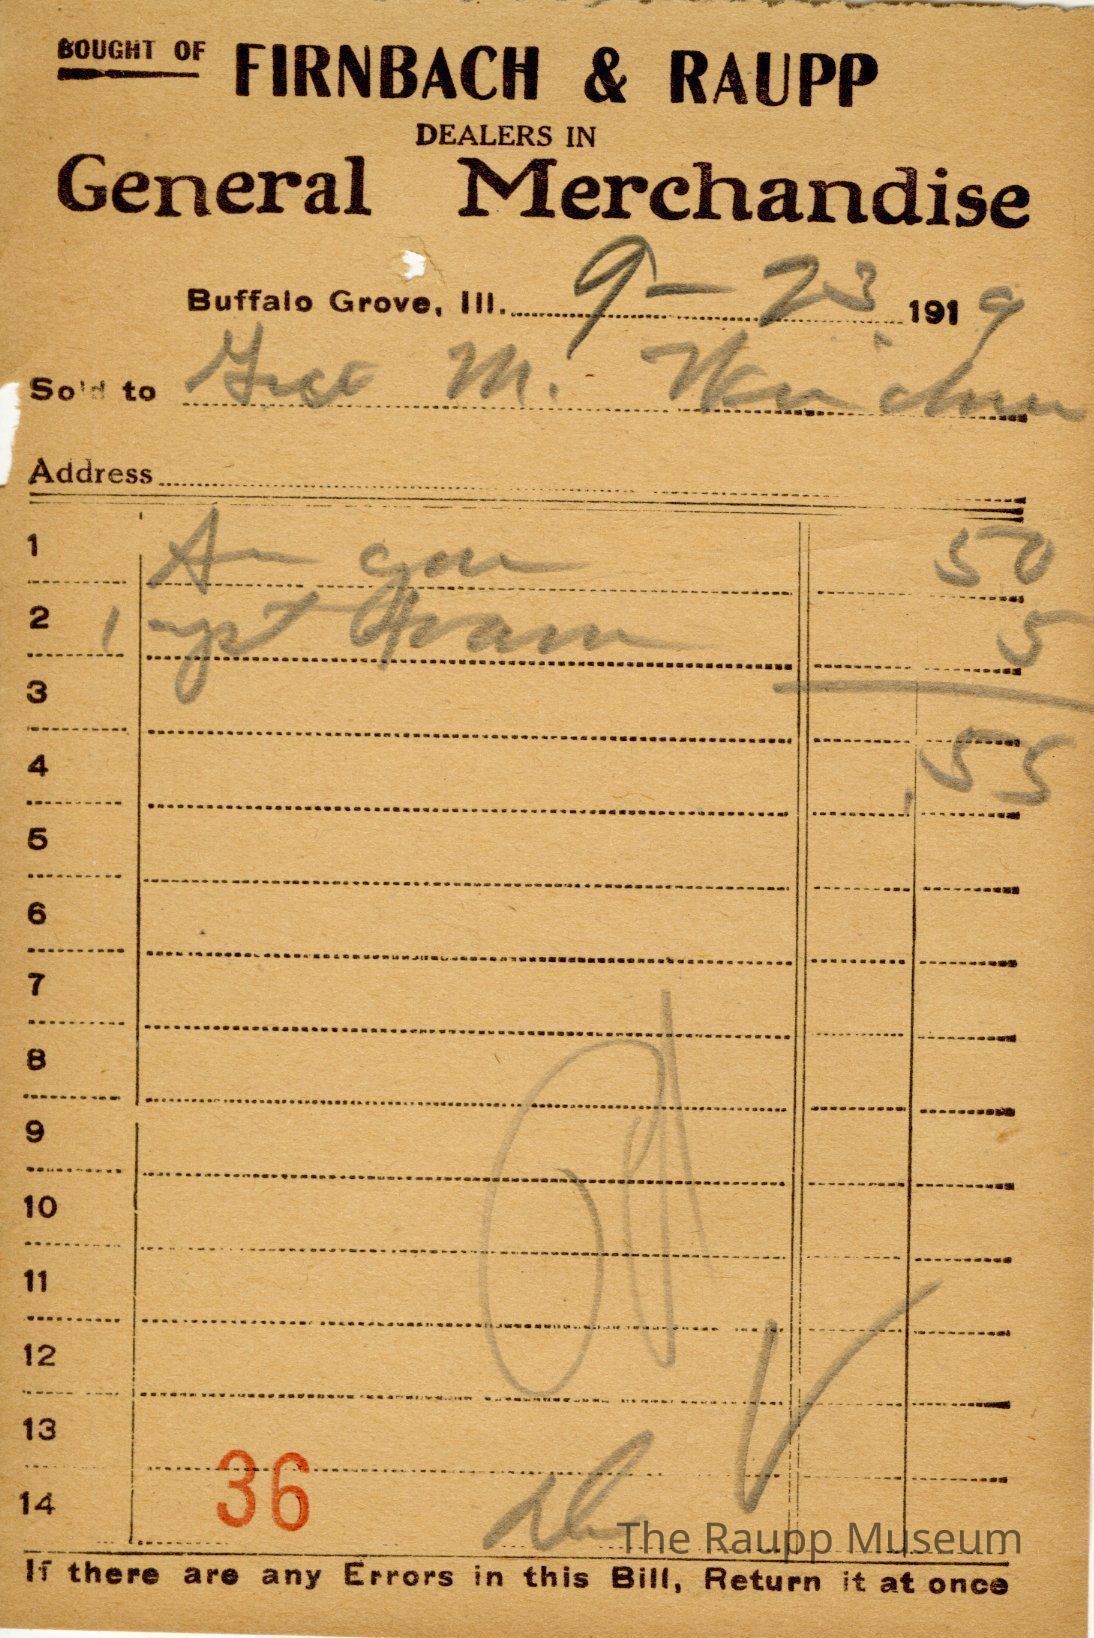 BOUGHT OF FIRNBACH & RAUPP
DEALERS IN
General Merchandise
Buffalo Grove, Ill. 9-23 1919
Sold to M.
Address
1 50
2 1 5
3
4 .55
5
6
7
8
9
10
11
12
13
14 36
The Raupp Museum
If there are any Errors in this Bill, Return it at once